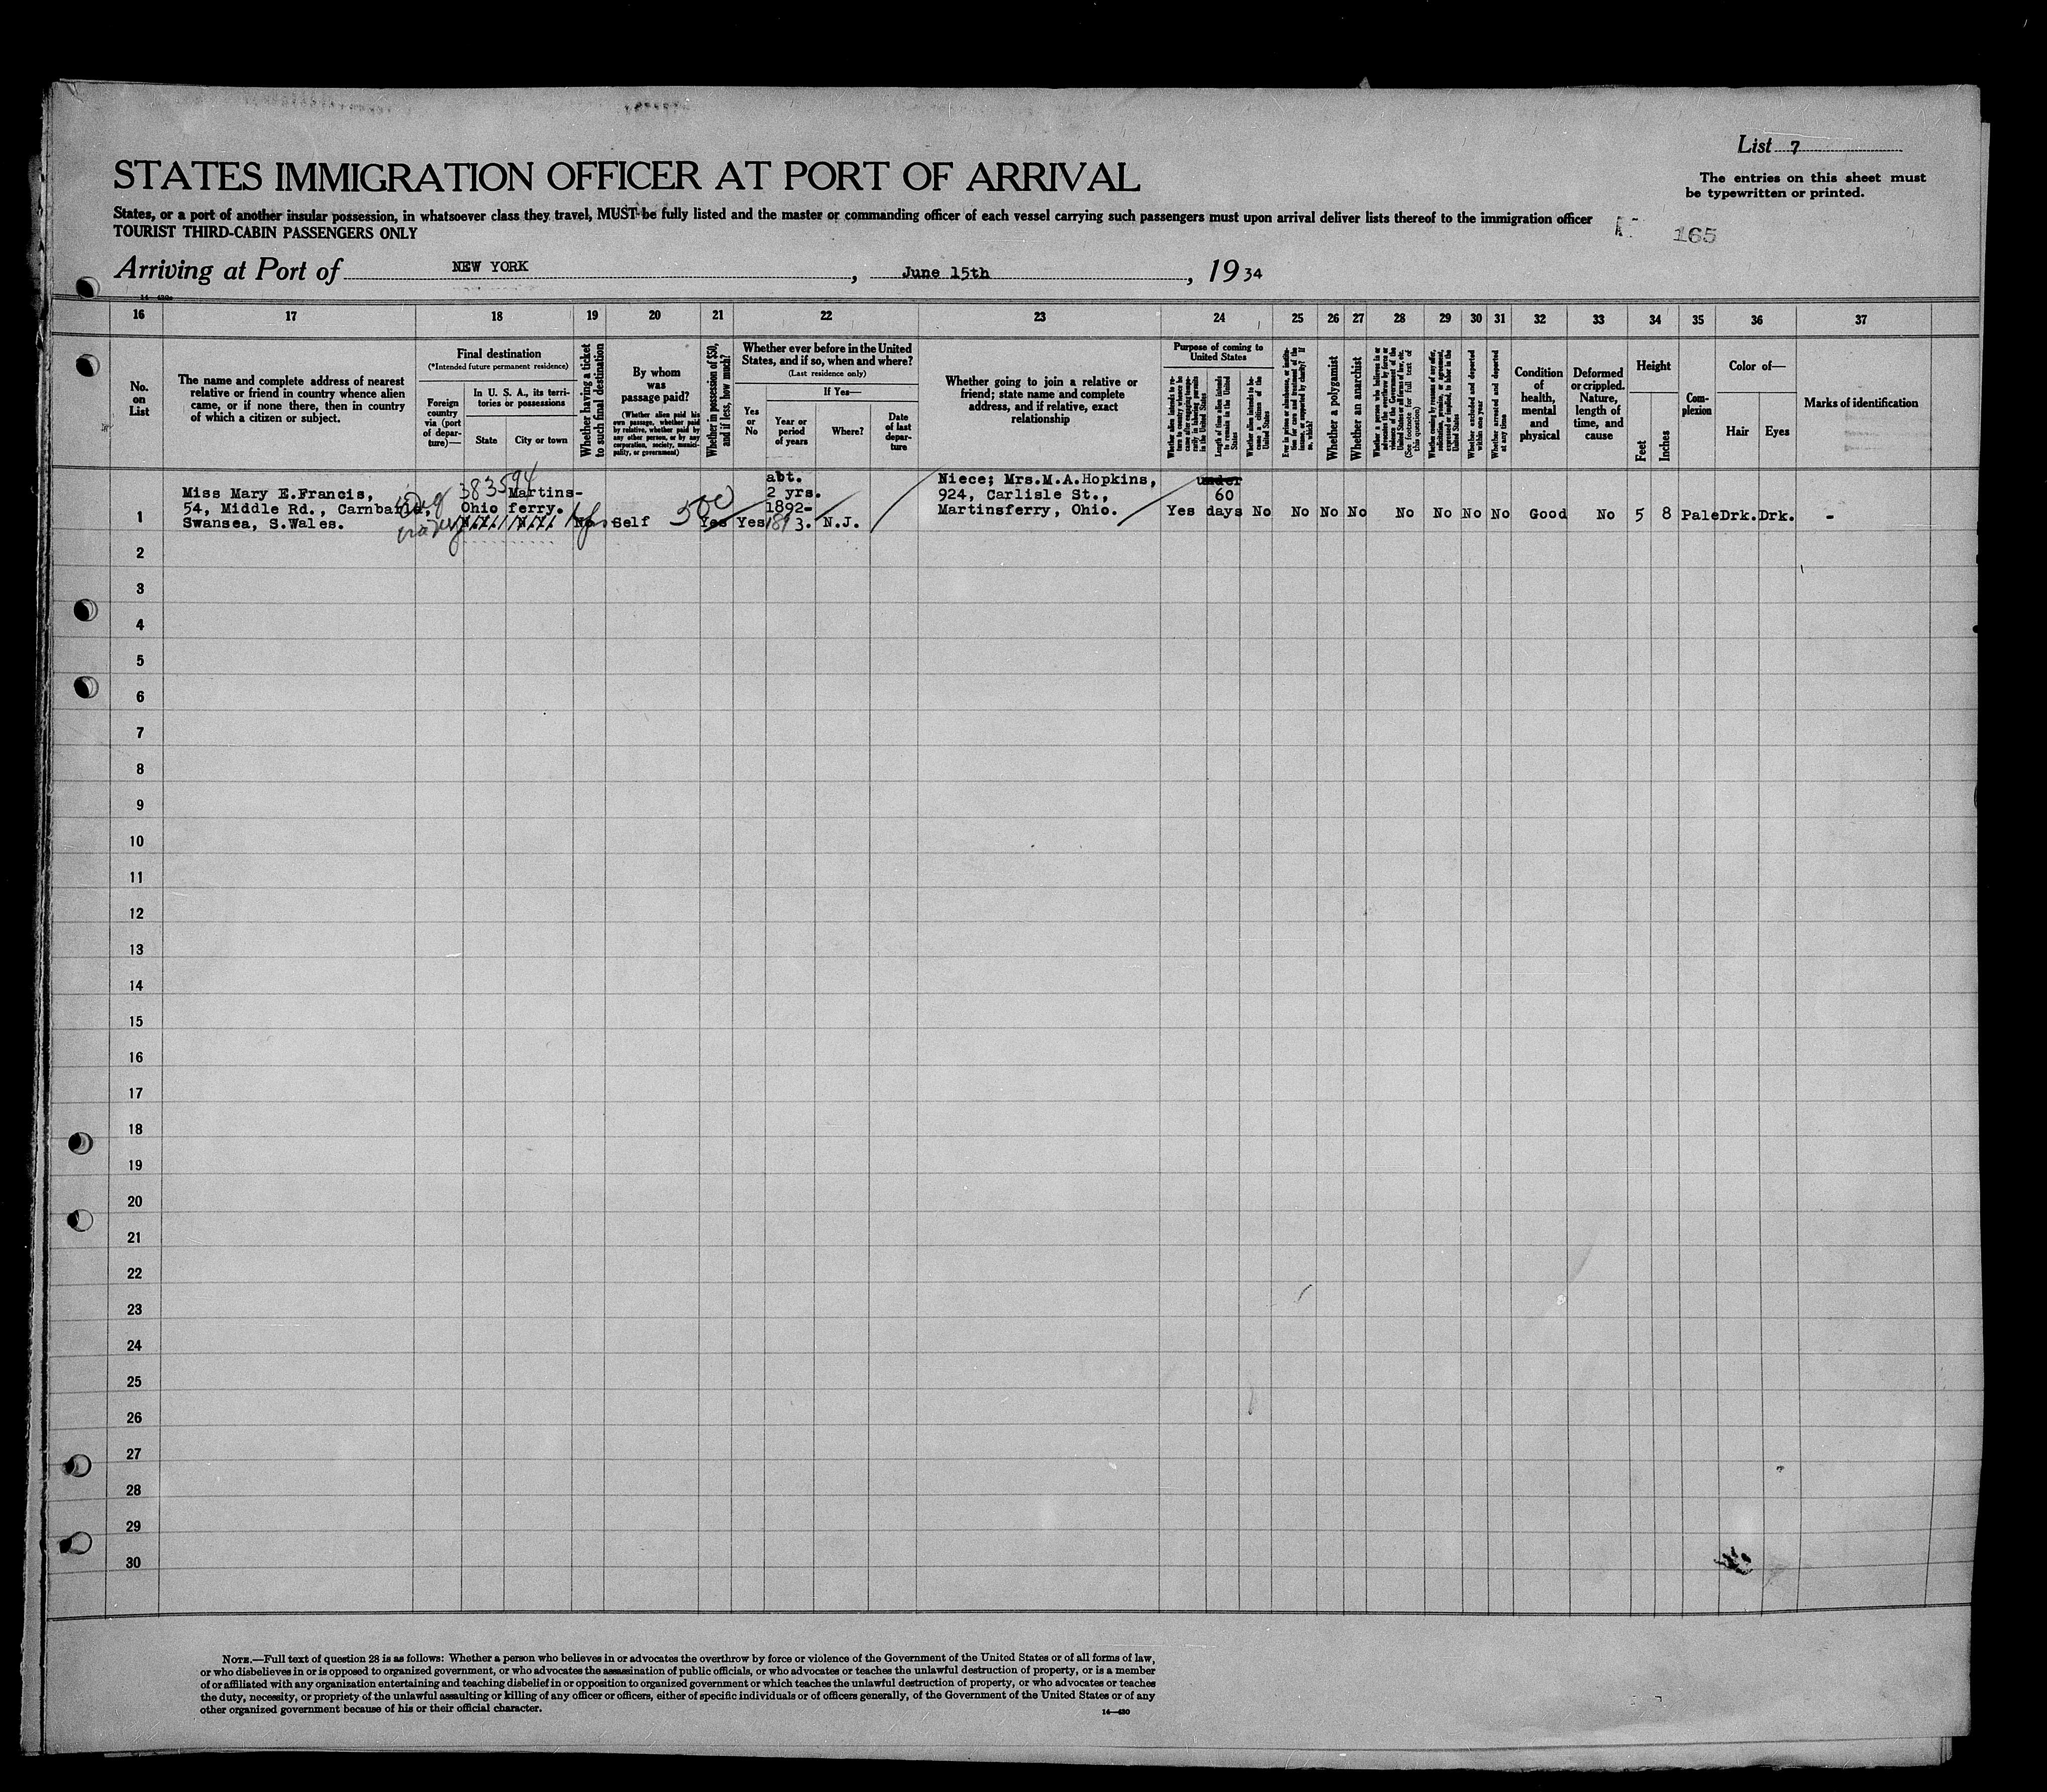 List 7
The entries on this sheet must
be typewritten or printed.
STATES IMMIGRATION OFFICER AT PORT OF ARRIVAL
States, or a port of another insular possession, in whatsoever class they travel, MUST be fully listed and the master or commanding officer of each vessel carrying such passengers must upon arrival deliver lists thereof to the immigration officer
TOURIST THIRD-CABIN PASSENGERS ONLY
165
Arriving at Port of NEW YORK, June 15th, 1934
16 17 18 19 20 21 22 23 24 25 26 27 28 29 30 31 32 33 34 35 36 37
No.
on
List
The name and complete address of nearest
relative or friend in country whence alien
came, or if none there, then in country
of which a citizen or subject.
Final destination
(*Intended future permanent residence)
Foreign
country
via (port
of depar-
ture)—
In U. S. A., its terri-
tories or possessions
State
City or town
Whether having a ticket
to such final destination
By whom
was
passage paid?
(Whether alien paid his
own passage, whether paid
by relative, whether paid by
any other person, or by any
corporation, society, munici-
pality, or government)
Whether in possession of $50,
and if less, how much?
Whether ever before in the United
States, and if so, when and where?
(Last residence only)
Yes
or
No
If Yes—
Year or
period
of years
Where?
Date
of last
depar-
ture
Whether going to join a relative or
friend; state name and complete
address, and if relative, exact
relationship
Purpose of coming to
United States
Whether alien intends to re-
turn to country whence he
came after engaging tempo-
rarily in laboring pursuits
in the United States
Length of time alien intends
to remain in the United
States
Whether alien intends to be-
come a citizen of the
United States
Whether a polygamist
Whether an anarchist
Whether excluded and deported
within one year
Whether arrested and deported
at any time
Condition
of
health,
mental
and
physical
Deformed
or crippled.
Nature,
length of
time, and
cause
Height
Feet
Inches
Com-
plexion
Color of—
Hair
Eyes
Marks of identification
383594
Miss Mary E.Francis,
54, Middle Rd., Carnbafld,
Swansea, S.Wales.
Martins-
Ohio ferry.
No
Self
500
Yes
Yes
abt.
2 yrs.
1892-
1893.
N.J.
Niece; Mrs.M.A.Hopkins,
924, Carlisle St.,
Martinsferry, Ohio.
Yes
under
60
days
No No No No No No No No Good No 5 8 Pale Drk. Drk. -
1
2
3
4
5
6
7
8
9
10
11
12
13
14
15
16
17
18
19
20
21
22
23
24
25
26
27
28
29
30
NOTE.—Full text of question 28 is as follows: Whether a person who believes in or advocates the overthrow by force or violence of the Government of the United States or of all forms of law,
or who disbelieves in or is opposed to organized government, or who advocates the assassination of public officials, or who advocates or teaches the unlawful destruction of property, or is a member
of or affiliated with any organization entertaining and teaching disbelief in or opposition to organized government or which teaches the unlawful destruction of property, or who advocates or teaches
the duty, necessity, or propriety of the unlawful assaulting or killing of any officer or officers, either of specific individuals or of officers generally, of the Government of the United States or of any
other organized government because of his or their official character.
14—430